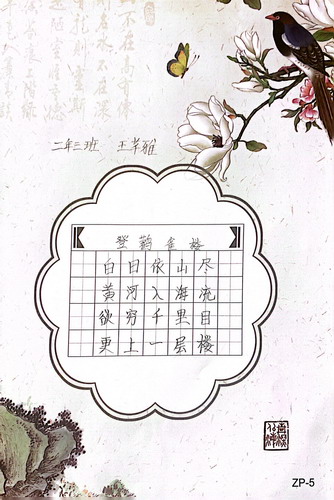 二年三班 王芊雅
登鹳雀楼
白日依山尽
黄河入海流
欲穷千里目
更上一层楼
ZP-5